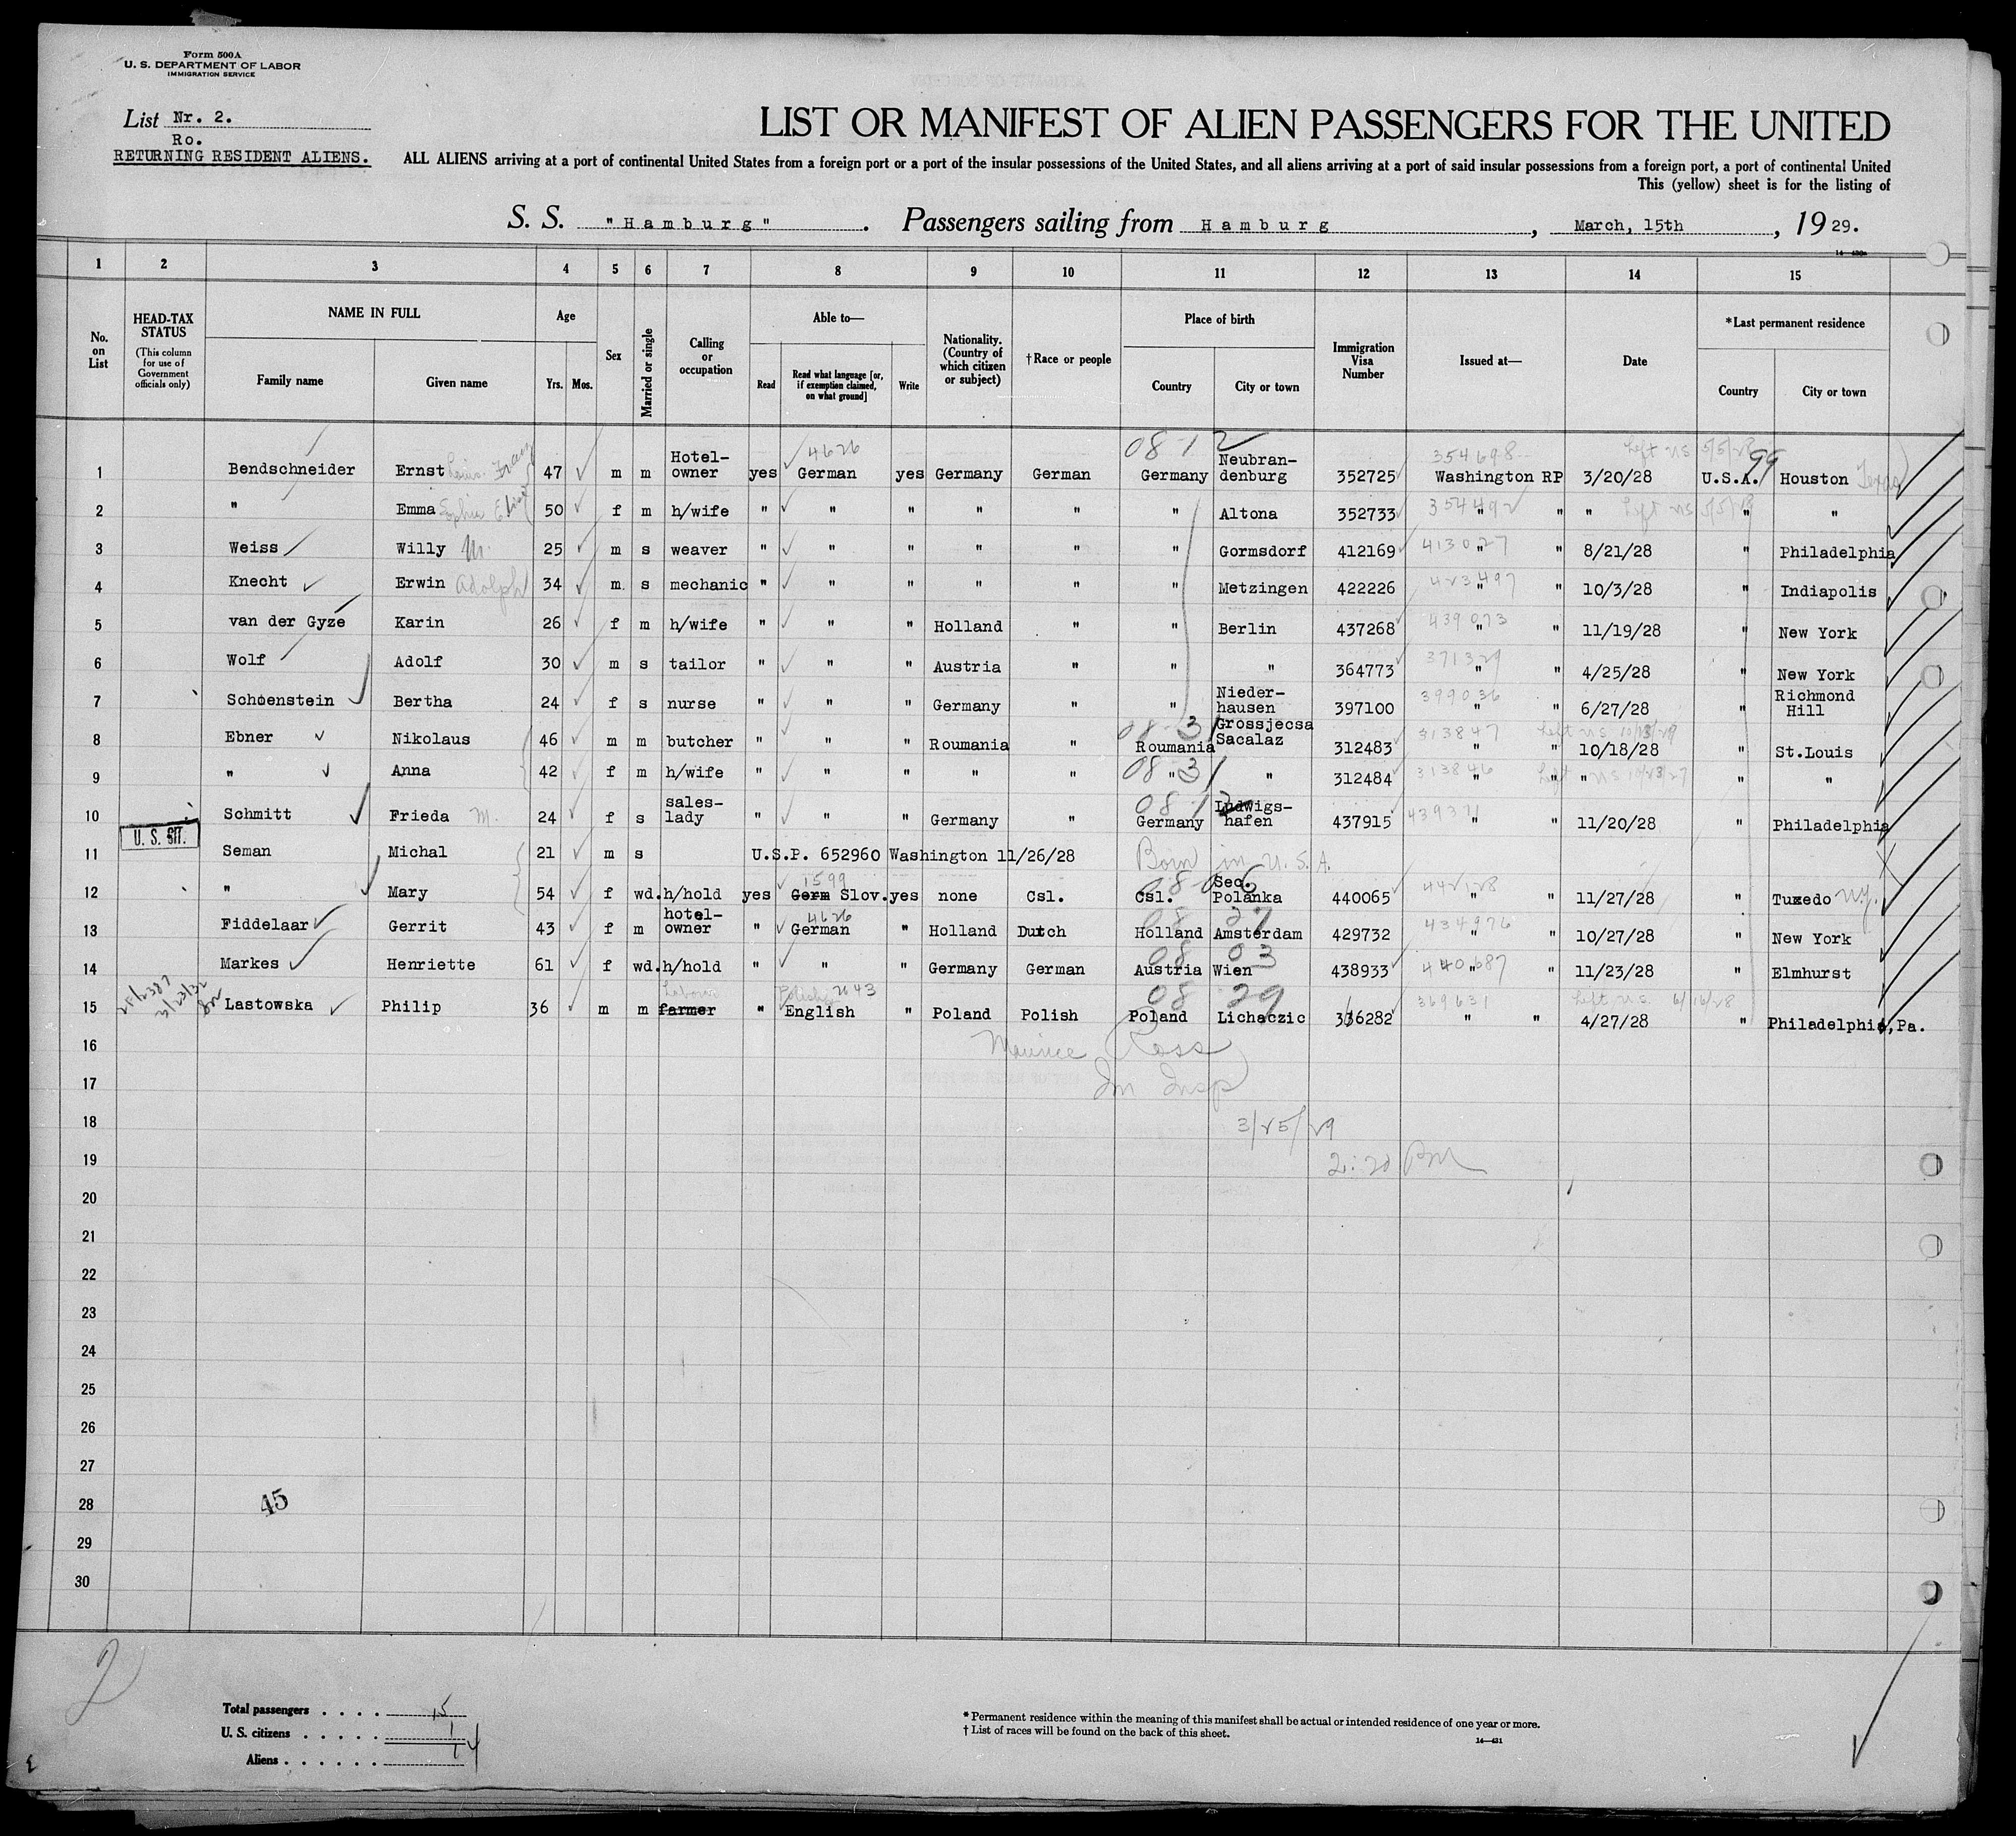 Form 500A
U. S. DEPARTMENT OF LABOR
IMMIGRATION SERVICE
List Nr. 2.
Ro.
RETURNING RESIDENT ALIENS.
LIST OR MANIFEST OF ALIEN PASSENGERS FOR THE UNITED
ALL ALIENS arriving at a port of continental United States from a foreign port or a port of the insular possessions of the United States, and all aliens arriving at a port of said insular possessions from a foreign port, a port of continental United
This (yellow) sheet is for the listing of
S. S. "Hamburg". Passengers sailing from Hamburg, March, 15th, 1929.
1 2 3 4 5 6 7 8 9 10 11 12 13 14 15
No. on List
HEAD-TAX STATUS (This column for use of Government officials only)
NAME IN FULL Family name Given name
Age Yrs. Mos.
Sex
Married or single
Calling or occupation
Able to— Read Read what language [or, if exemption claimed, on what ground] Write
Nationality. (Country of which citizen or subject)
†Race or people
Place of birth Country City or town
Immigration Visa Number
Issued at—
Date
*Last permanent residence Country City or town
08-12 4626 354698 Left US 5/5/28 99
1 Bendschneider Ernst 47 m m Hotel-owner yes German yes Germany German Germany Neubran-denburg 352725 Washington RP 3/20/28 U.S.A. Houston Texas
2 " Emma Sophia Elise 50 f m h/wife " " " " " " Altona 352733 354492 " " " Left US 5/5/28 " "
3 Weiss Willy M. 25 m s weaver " " " " " " Gormsdorf 412169 413027 " " 8/21/28 " Philadelphia
4 Knecht Erwin Adolph 34 m s mechanic " " " " " " Metzingen 422226 423497 " " 10/3/28 " Indiapolis
5 van der Gyze Karin 26 f m h/wife " " " Holland " " Berlin 437268 439073 " " 11/19/28 " New York
6 Wolf Adolf 30 m s tailor " " " Austria " " " 364773 371329 " " 4/25/28 " New York
7 Schoenstein Bertha 24 f s nurse " " " Germany " " Nieder-hausen 397100 399036 " " 6/27/28 " Richmond Hill
8 Ebner Nikolaus 46 m m butcher " " " Roumania " 08-31 Roumania Grossjecsa Sacalaz 312483 313847 " " 10/18/28 " St.Louis
9 " Anna 42 f m h/wife " " " " " 08 31 " " 312484 313846 " " " " "
10 Schmitt Frieda M. 24 f s sales-lady " " " Germany " 08 12 Germany Ludwigs-hafen 437915 439371 " " 11/20/28 " Philadelphia
U. S. CIT.
11 Seman Michal 21 m s U.S.P. 652960 Washington 11/26/28 Born in U.S.A.
12 " Mary 54 f wd. h/hold yes 1599 Germ Slov. yes none Csl. 08-06 Csl. Sec. Polanka 440065 442128 " " 11/27/28 " Tuxedo N.Y.
13 Fiddelaar Gerrit 43 f m hotel-owner " 4626 German " Holland Dutch 08 27 Holland Amsterdam 429732 434976 " " 10/27/28 " New York
14 Markes Henriette 61 f wd. h/hold " " " Germany German 08 03 Austria Wien 438933 440687 " " 11/23/28 " Elmhurst
15 Lastowska Philip 36 m m farmer Laborer " Polish English " Poland Polish 08 29 Poland Lichaczic 336282 369631 " " Left U.S. 6/16/28 4/27/28 " Philadelphia, Pa.
16 Maurice Ross
17 Im Insp
18 3/25/29
19 2:20 PM
20
21
22
23
24
25
26
27
28 45
29
30
2
Total passengers . . . . 15
U. S. citizens . . . . . 1
Aliens . . . . . . 14
* Permanent residence within the meaning of this manifest shall be actual or intended residence of one year or more.
† List of races will be found on the back of this sheet.
14—431